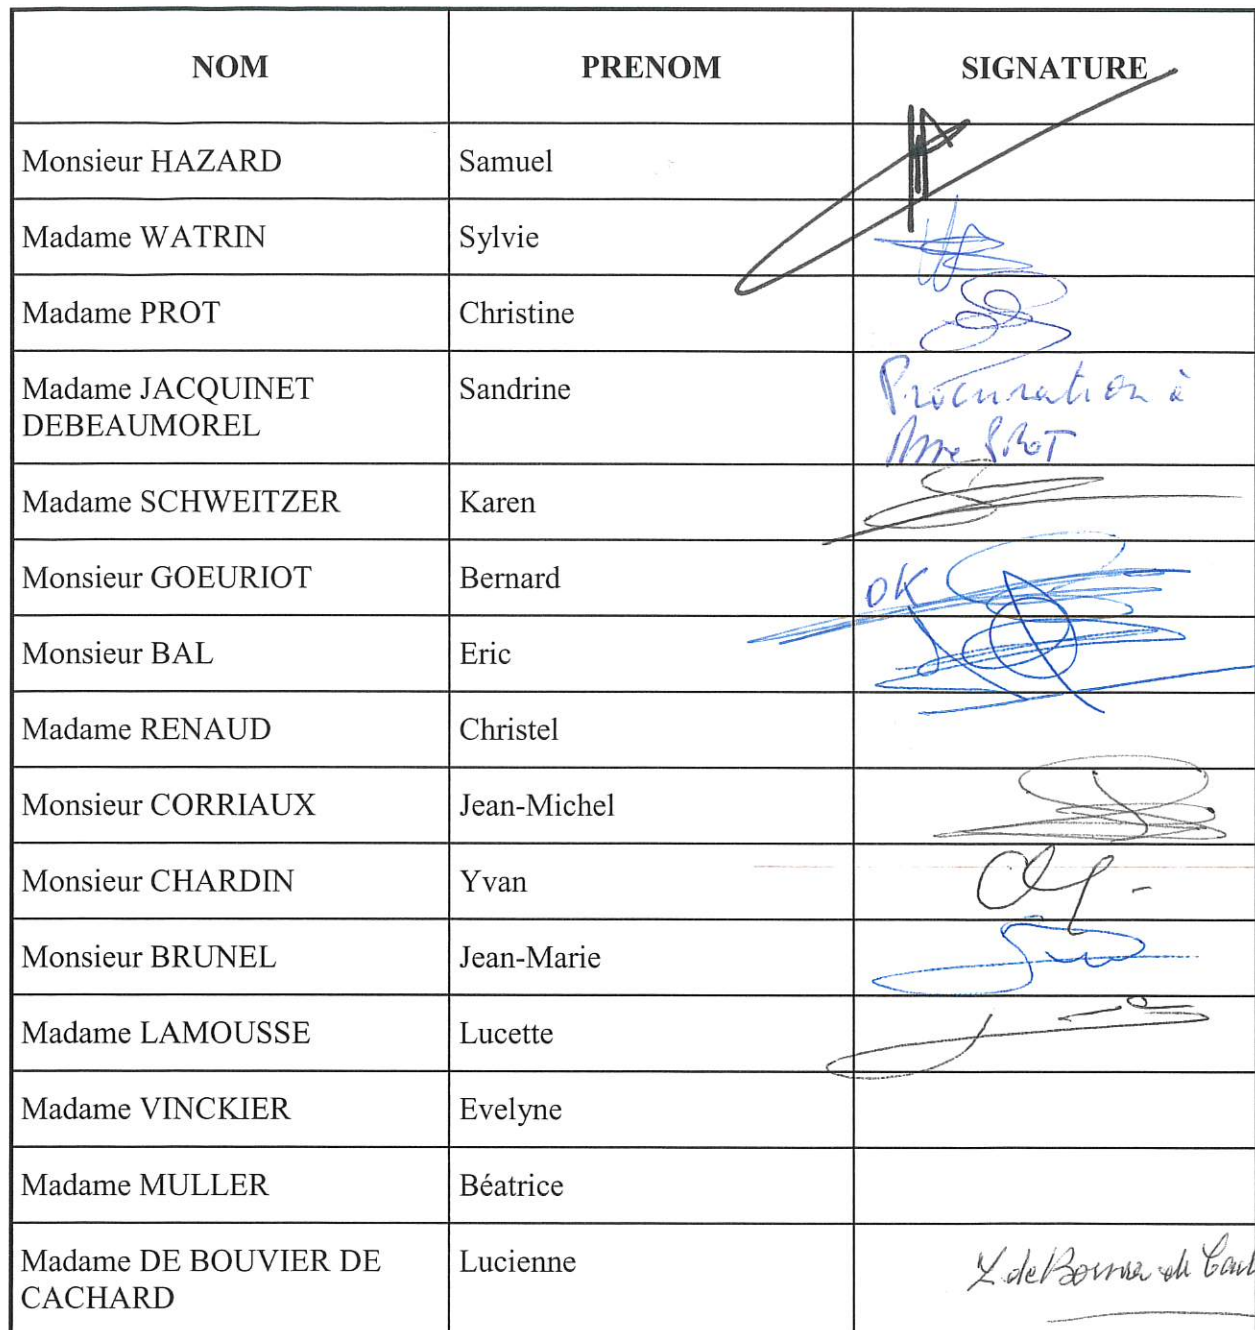 NOM PRENOM SIGNATURE
Monsieur HAZARD Samuel
Madame WATRIN Sylvie
Madame PROT Christine
Madame JACQUINET Sandrine Procuration à
DEBEAUMOREL Mme PROT
Madame SCHWEITZER Karen
Monsieur GOEURIOT Bernard OK
Monsieur BAL Eric
Madame RENAUD Christel
Monsieur CORRIAUX Jean-Michel
Monsieur CHARDIN Yvan
Monsieur BRUNEL Jean-Marie
Madame LAMOUSSE Lucette
Madame VINCKIER Evelyne
Madame MULLER Béatrice
Madame DE BOUVIER DE Lucienne
CACHARD